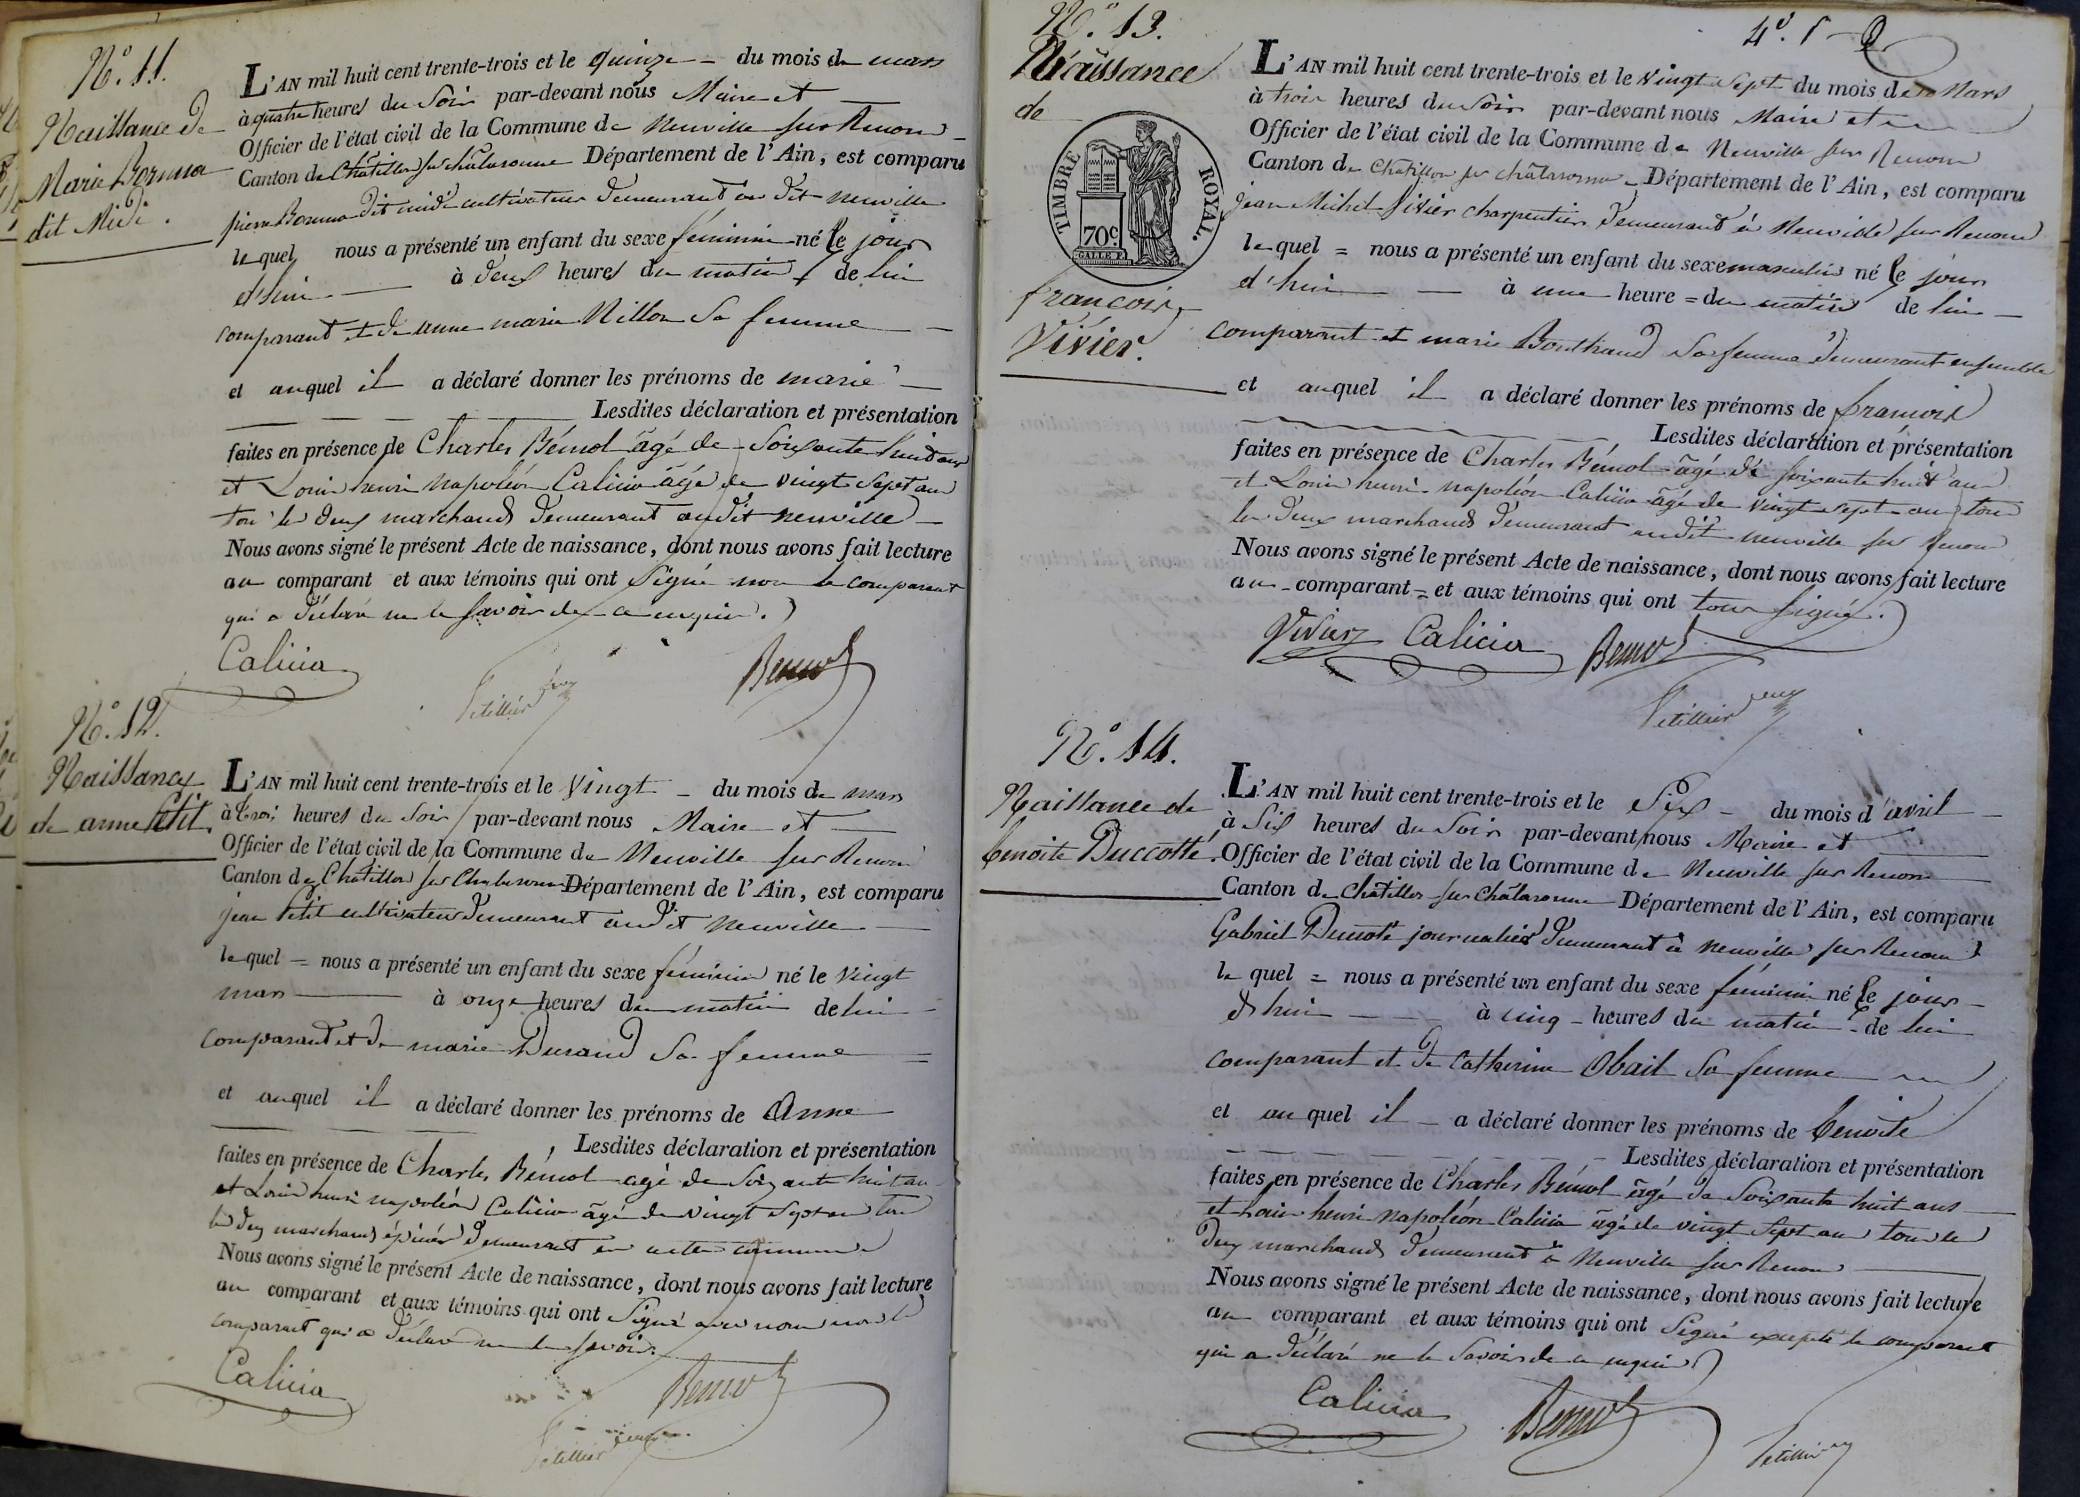 N.º 11.
Naissance de
Marie Bornua
dit Midi.
L'AN mil huit cent trente-trois et le quinze du mois de mars
à quatre heures du Soir par-devant nous Maire et
Officier de l'état civil de la Commune de Neuville sur Renom
Canton de Châtillon sur Châlaronne Département de l'Ain, est comparu
pierre Bornua dit midi cultivateur demeurant au dit neuville
lequel nous a présenté un enfant du sexe féminin né le jour
d'hui à deux heures du matin de lui
comparant et de anne marie Millon Sa femme
et auquel il a déclaré donner les prénoms de marie
Lesdites déclaration et présentation
faites en présence de Charles Bémol âgé de Soixante huit ans
et Louis henri napoléon Calicia âgé de vingt Sept ans
tous les deux marchands demeurant audit neuville
Nous avons signé le présent Acte de naissance, dont nous avons fait lecture
au comparant et aux témoins qui ont Signé non le comparant
qui a déclaré ne le Savoir de ce enquis.
Calicia Bemol
N.º 12.
Naissance
de anne Petit.
L'AN mil huit cent trente-trois et le Vingt du mois de mars
à trois heures du Soir par-devant nous Maire et
Officier de l'état civil de la Commune de Neuville sur Renom
Canton de Châtillon sur Chalaronne Département de l'Ain, est comparu
jean Petit cultivateur demeurant audit Neuville
lequel = nous a présenté un enfant du sexe féminin né le Vingt
mars à onze heures du matin de lui
comparant et de marie Durand Sa femme
et auquel il a déclaré donner les prénoms de Anne
Lesdites déclaration et présentation
faites en présence de Charles Bémol agé de Soixante huit ans
et Louis henri napoléon Calicia âgé de vingt Sept ans tous
les deux marchands épicier demeurant en cette commune
Nous avons signé le présent Acte de naissance, dont nous avons fait lecture
au comparant et aux témoins qui ont Signé avec nous non le
comparant qui a déclaré ne le Savoir.
Calicia Bemol
4e. f
N.º 13.
Naissance
de
TIMBRE ROYAL.
70c
françois
Vivier.
L'AN mil huit cent trente-trois et le Vingt Sept du mois de Mars
à trois heures du Soir par-devant nous Maire et
Officier de l'état civil de la Commune de Neuville sur Renom
Canton de Châtillon sur Châlaronne Département de l'Ain, est comparu
jean Michel Vivier charpentier demeurant à Neuville sur Renom
lequel = nous a présenté un enfant du sexe masculin né le jour
d'hui à une heure = du matin de lui
comparant et marie Bouthaud Sa femme demeurant ensemble
et auquel il a déclaré donner les prénoms de françois
Lesdites déclaration et présentation
faites en présence de Charles Bémol âgé de soixante huit ans
et Louis henri napoléon Calicia âgé de vingt sept ans tous
les deux marchands demeurant audit neuville sur Renom
Nous avons signé le présent Acte de naissance, dont nous avons fait lecture
au comparant = et aux témoins qui ont tous Signé.
Vivier Calicia Bemol
N.º 14.
Naissance de
benoite Duccotté.
L'AN mil huit cent trente-trois et le Six du mois d'avril
à Six heures du Soir par-devant nous Maire et
Officier de l'état civil de la Commune de Neuville sur Renom
Canton de Châtillon sur Châlaronne Département de l'Ain, est comparu
Gabriel Ducoté journalier demeurant à neuville sur Renom
lequel = nous a présenté un enfant du sexe féminin né le jour
d'hui à cinq heures du matin de lui
comparant et de Catherine Obail Sa femme
et auquel il a déclaré donner les prénoms de benoite
Lesdites déclaration et présentation
faites en présence de Charles Bémol âgé de Soixante huit ans
et Louis henri napoléon Calicia âgé de vingt Sept ans tous les
deux marchands demeurant à Neuville sur Renom
Nous avons signé le présent Acte de naissance, dont nous avons fait lecture
au comparant et aux témoins qui ont Signé excepté le comparant
qui a déclaré ne le Savoir de ce enquis
Calicia Bemol